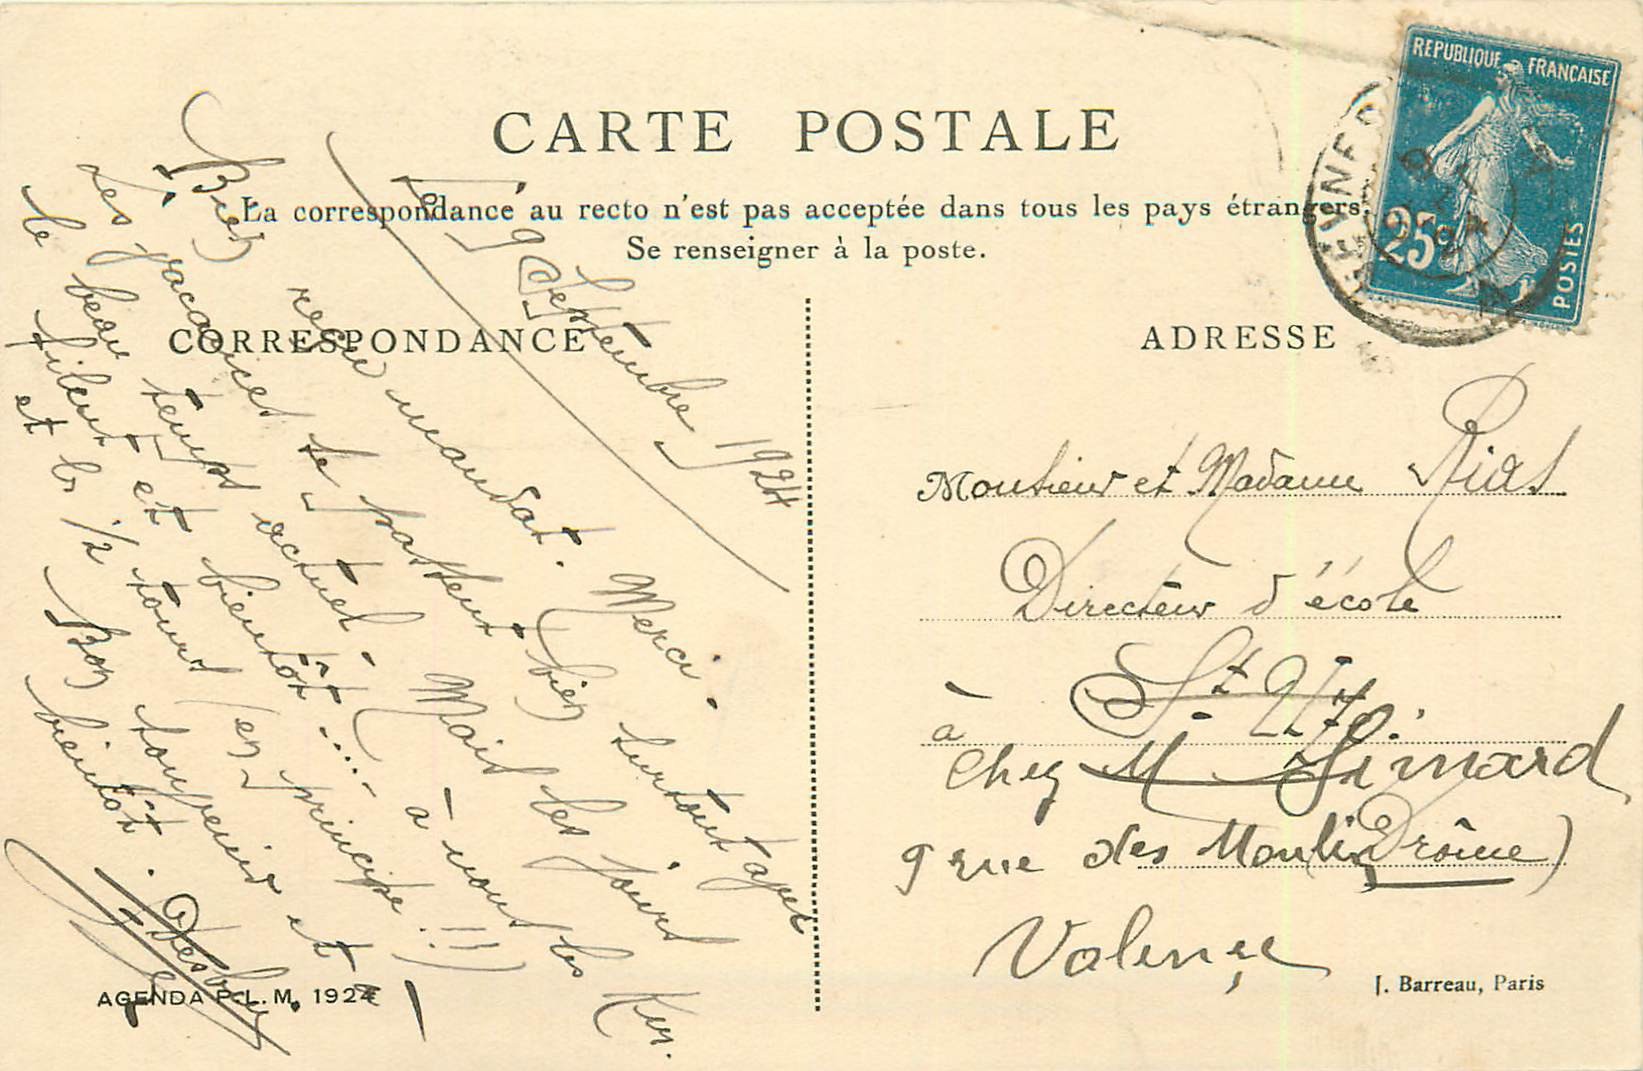 CARTE POSTALE
La correspondance au recto n'est pas acceptée dans tous les pays étrangers.
Se renseigner à la poste.
CORRESPONDANCE
ADRESSE
REPUBLIQUE FRANCAISE
25c
POSTES
Le 9 Septembre 1924
Bien reçu mandat. Merci.
Les vacances se passent bien surtout avec
le beau temps actuel. Mais les jours
filent et bientôt..... à nous les Km.
et le 1/2 tour (en principe!!)
Bon souvenir et à
bientôt.
Monsieur et Madame Rias
Directeur d'école
à St Uze
Chez M Simard
(Drôme)
9 rue des Moulins
Valence
AGENDA P.L.M. 1924
J. Barreau, Paris